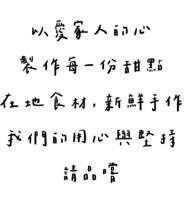 以愛家人的心
製作每一份甜點
在地食材，新鮮手作
我們的用心與堅持
請品嚐